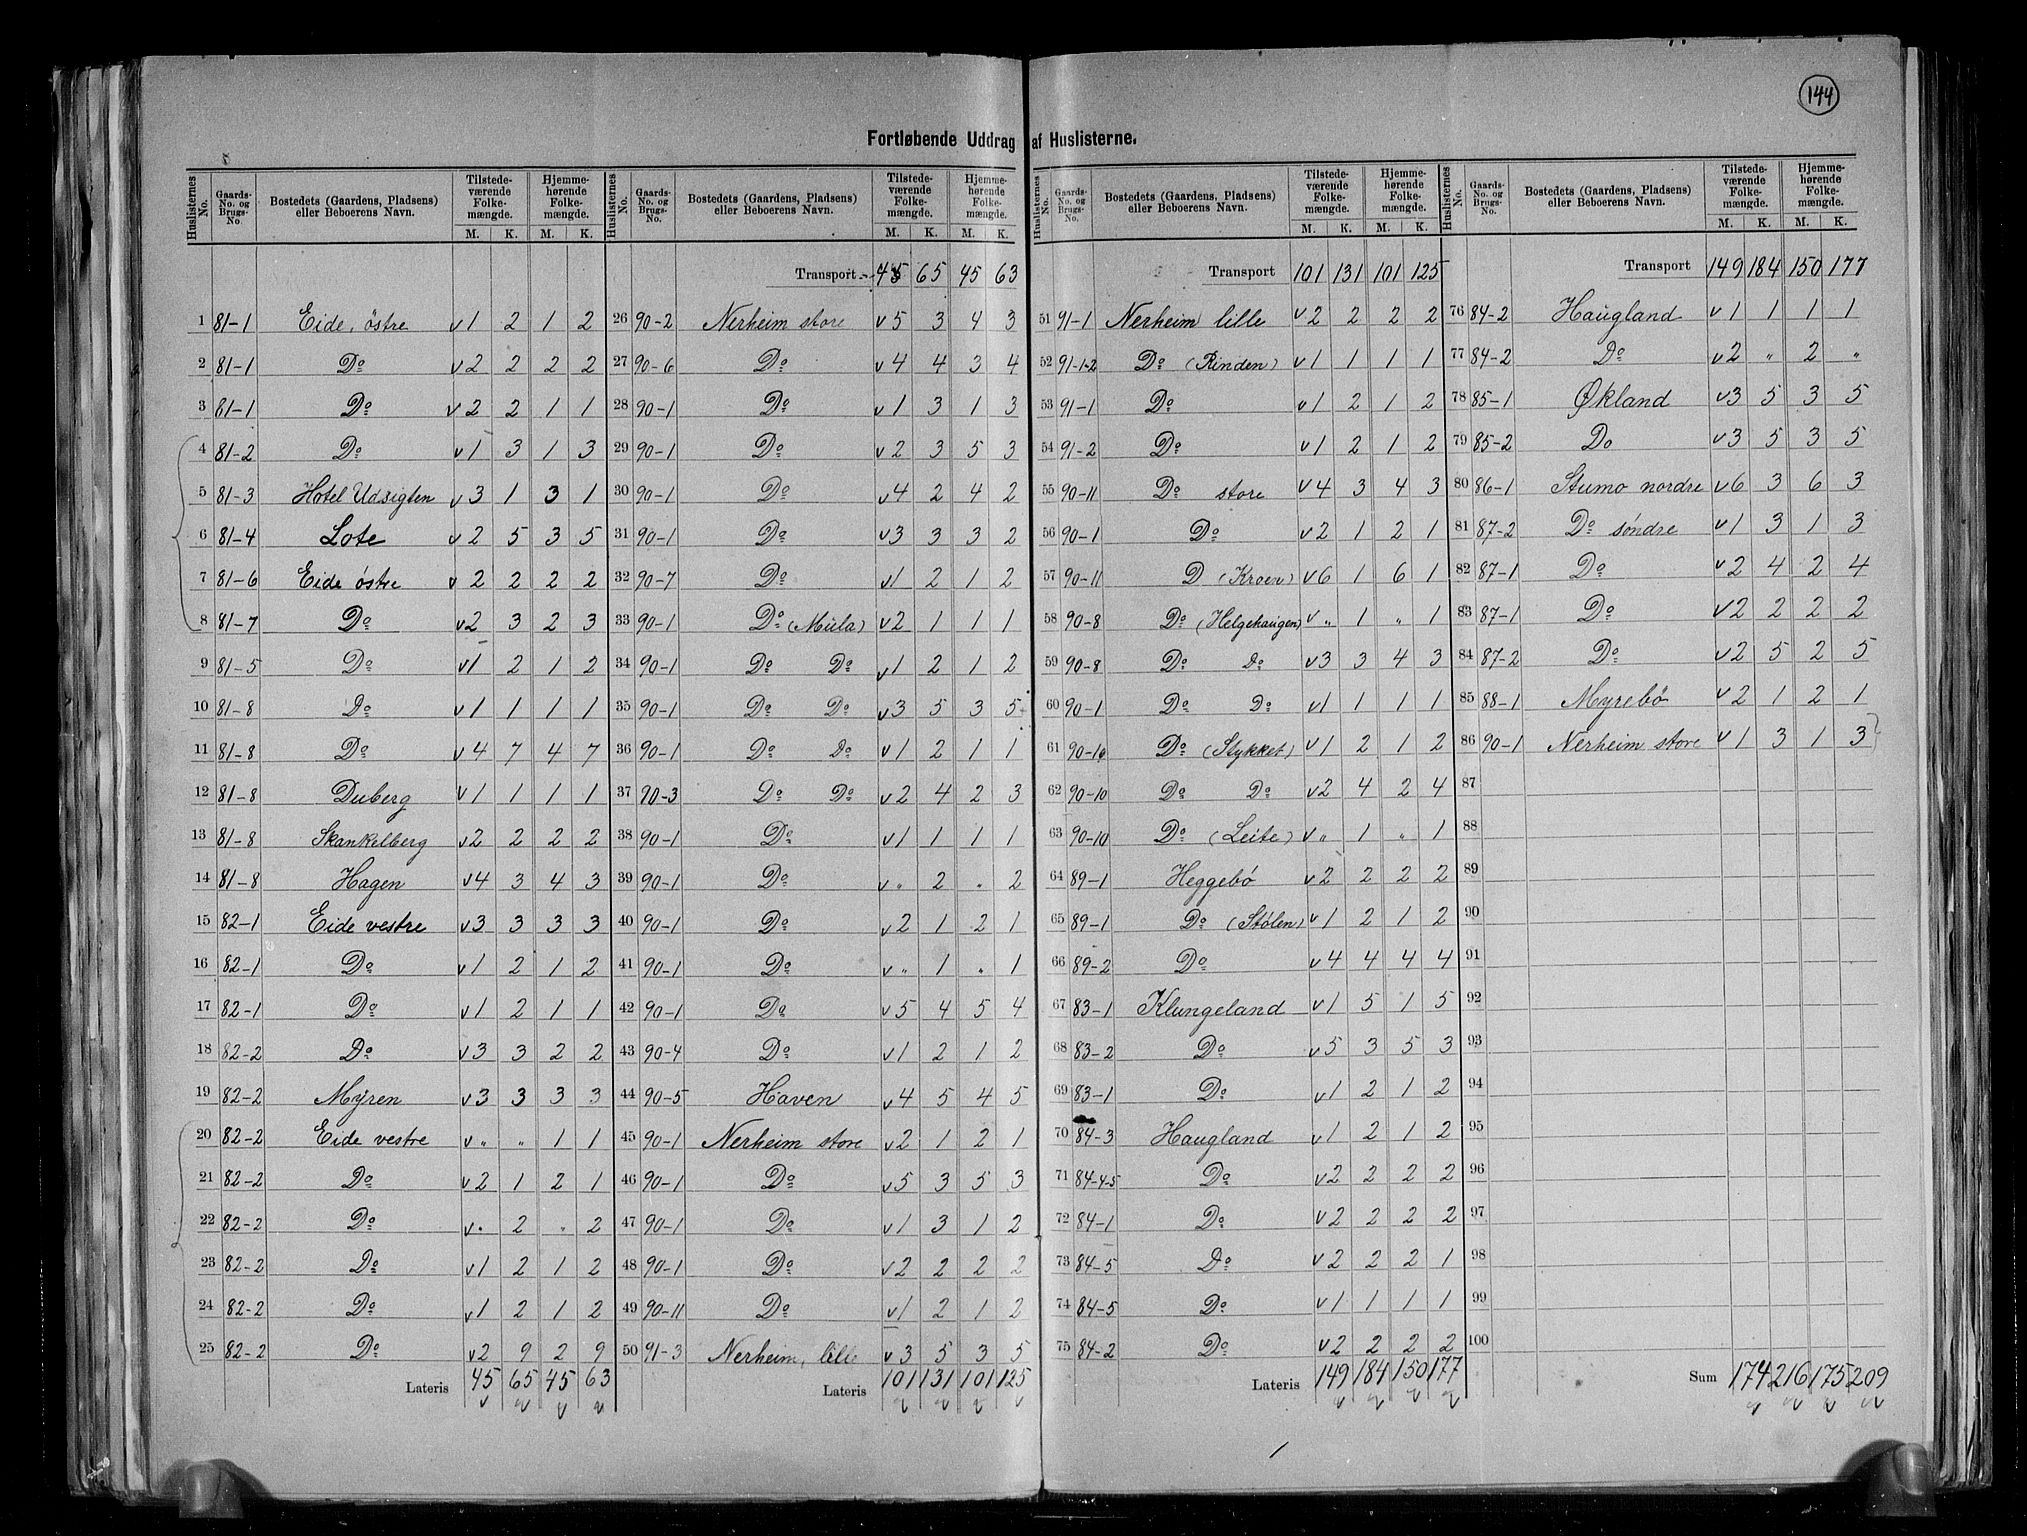 144
Fortløbende Uddrag af Huslisterne.
Huslisternes No. | Gaards-No. og Brugs-No. | Bostedets (Gaardens, Pladsens) eller Beboerens Navn. | Tilstedeværende Folkemængde. M. K. | Hjemmehørende Folkemængde. M. K.
1 81-1 Eide, østre v1 2 1 2
2 81-1 Do v2 2 2 2
3 81-1 Do v2 2 1 1
4 81-2 Do v1 3 1 3
5 81-3 Hotel Udsigten v3 1 3 1
6 81-4 Lote v2 5 3 5
7 81-6 Eide østre v2 2 2 2
8 81-7 Do v2 3 2 3
9 81-5 Do v1 2 1 2
10 81-8 Do v1 1 1 1
11 81-8 Do v4 7 4 7
12 81-8 Duberg v1 1 1 1
13 81-8 Skankelberg v2 2 2 2
14 81-8 Hagen v4 3 4 3
15 82-1 Eide vestre v3 3 3 3
16 82-1 Do v1 2 1 2
17 82-1 Do v1 2 1 1
18 82-2 Do v3 3 2 2
19 82-2 Myren v3 3 3 3
20 82-2 Eide vestre v „ „ 1 1
21 82-2 Do v2 1 2 1
22 82-2 Do v „ 2 „ 2
23 82-2 Do v1 2 1 2
24 82-2 Do v1 2 1 2
25 82-2 Do v2 9 2 9
Lateris 45 65 45 63
Huslisternes No. | Gaards-No. og Brugs-No. | Bostedets (Gaardens, Pladsens) eller Beboerens Navn. | Tilstedeværende Folkemængde. M. K. | Hjemmehørende Folkemængde. M. K.
Transport 45 65 45 63
26 90-2 Nerheim store v5 3 4 3
27 90-6 Do v4 4 3 4
28 90-1 Do v1 3 1 3
29 90-1 Do v2 3 5 3
30 90-1 Do v4 2 4 2
31 90-1 Do v3 3 3 2
32 90-7 Do v1 2 1 2
33 90-1 Do (Mula) v2 1 1 1
34 90-1 Do Do v1 2 1 2
35 90-1 Do Do v3 5 3 5
36 90-1 Do Do v1 2 1 1
37 90-3 Do Do v2 4 2 3
38 90-1 Do v1 1 1 1
39 90-1 Do v „ 2 „ 2
40 90-1 Do v2 1 2 1
41 90-1 Do v „ 1 „ 1
42 90-1 Do v5 4 5 4
43 90-4 Do v1 2 1 2
44 90-5 Haven v4 5 4 5
45 90-1 Nerheim store v2 1 2 1
46 90-1 Do v5 3 5 3
47 90-1 Do v1 3 1 2
48 90-1 Do v2 2 2 2
49 90-11 Do v1 2 1 2
50 91-3 Nerheim, lille v3 5 3 5
Lateris 101 131 101 125
Huslisternes No. | Gaards-No. og Brugs-No. | Bostedets (Gaardens, Pladsens) eller Beboerens Navn. | Tilstedeværende Folkemængde. M. K. | Hjemmehørende Folkemængde. M. K.
Transport 101 131 101 125
51 91-1 Nerheim lille v2 2 2 2
52 91-1-2 Do (Rinden) v1 1 1 1
53 91-1 Do v1 2 1 2
54 91-2 Do v1 2 1 2
55 90-11 Do store v4 3 4 3
56 90-1 Do v2 1 2 1
57 90-11 D (Kroen) v6 1 6 1
58 90-8 Do (Helgehaugen) v „ 1 „ 1
59 90-8 Do Do v3 3 4 3
60 90-1 Do Do v1 1 1 1
61 90-10 Do (Stykket) v1 2 1 2
62 90-10 Do Do v2 4 2 4
63 90-10 Do (Leite) v „ 1 „ 1
64 89-1 Heggebö v2 2 2 2
65 89-1 Do (Stölen) v1 2 1 2
66 89-2 Do v4 4 4 4
67 83-1 Klungeland v1 5 1 5
68 83-2 Do v5 3 5 3
69 83-1 Do v1 2 1 2
70 84-3 Haugland v1 2 1 2
71 84-4-5 Do v2 2 2 2
72 84-1 Do v2 2 2 2
73 84-5 Do v2 2 2 1
74 84-5 Do v1 1 1 1
75 84-2 Do v2 2 2 2
Lateris 149 184 150 177
Huslisternes No. | Gaards-No. og Brugs-No. | Bostedets (Gaardens, Pladsens) eller Beboerens Navn. | Tilstedeværende Folkemængde. M. K. | Hjemmehørende Folkemængde. M. K.
Transport 149 184 150 177
76 84-2 Haugland v1 1 1 1
77 84-2 Do v2 „ 2 „
78 85-1 Økland v3 5 3 5
79 85-2 Do v3 5 3 5
80 86-1 Stumo nordre v6 3 6 3
81 87-2 Do söndre v1 3 1 3
82 87-1 Do v2 4 2 4
83 87-1 Do v2 2 2 2
84 87-2 Do v2 5 2 5
85 88-1 Myrebö v2 1 2 1
86 90-1 Nerheim store v1 3 1 3
87
88
89
90
91
92
93
94
95
96
97
98
99
100
Sum 174 216 175 209